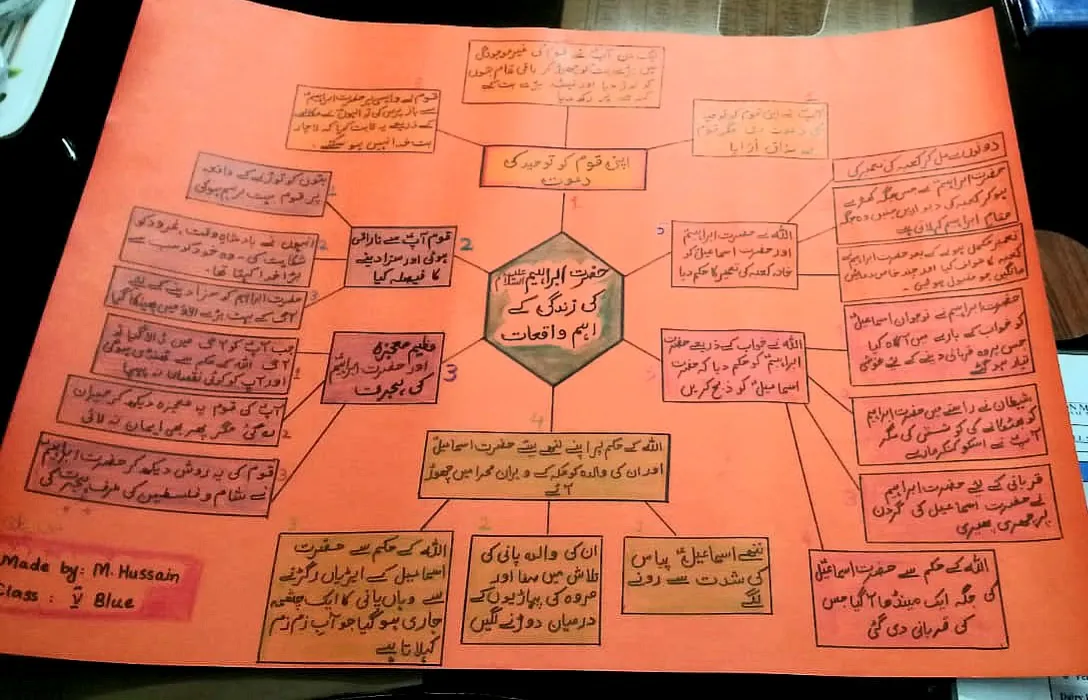 حضرت ابراہیم علیہ السلام
کی زندگی کے
اہم واقعات
1
اپنی قوم کو توحید کی
دعوت
آپؑ نے اپنی قوم کو توحید
کی دعوت دی مگر قوم
نے مذاق اڑایا
ایک دن آپؑ نے قوم کی غیر موجودگی
میں بڑے بت کو چھوڑ کر باقی تمام بتوں
کو توڑ دیا اور تیشہ بڑے بت کے
کندھے پر رکھ دیا
قوم کے واپسی پر حضرت ابراہیمؑ
سے باز پرس کی تو انہوں نے مکالمے
کے ذریعے یہ ثابت کیا کہ لاچار
بت خدا نہیں ہو سکتے۔
2
قوم آپؑ سے ناراض
ہوئی اور سزا دینے
کا فیصلہ کیا
1
بتوں کو توڑنے کے واقعہ
پر قوم بہت برہم ہوئی
2
انہوں نے بادشاہِ وقت نمرود کو
شکایت کی۔ وہ خود کو سب سے
بڑا خدا کہتا تھا۔
3
حضرت ابراہیمؑ کو سزا دینے کے لئے
آگ کے بہت بڑے الاؤ میں پھینکا گیا
3
عظیم معجزہ
اور حضرت ابراہیمؑ
کی ہجرت
1
جب آپؑ کو آگ میں ڈالا گیا تو
آگ اللہ کے حکم سے ٹھنڈی ہوگئی
اور آپ کو کوئی نقصان نہ پہنچا
2
آپؑ کی قوم یہ معجزہ دیکھ کر حیران
رہ گئی مگر پھر بھی ایمان نہ لائی
3
قوم کی یہ روش دیکھ کر حضرت ابراہیمؑ
نے شام و فلسطین کی طرف ہجرت کی
4
اللہ کے حکم پر اپنے ننھے بیٹے حضرت اسماعیلؑ
اور ان کی والدہ کو مکہ کے ویران صحرا میں چھوڑ
آئے
1
ننھے اسماعیلؑ پیاس
کی شدت سے رونے
لگے
2
ان کی والدہ پانی کی
تلاش میں صفا اور
مروہ کی پہاڑیوں کے
درمیان دوڑنے لگیں
3
اللہ کے حکم سے حضرت
اسماعیل کے ایڑیاں رگڑنے
سے وہاں پانی کا ایک چشمہ
جاری ہو گیا جو آبِ زم زم
کہلاتا ہے
5
اللہ نے خواب کے ذریعے حضرت
ابراہیمؑ کو حکم دیا کہ حضرت
اسماعیلؑ کو ذبح کریں
حضرت ابراہیم نے نوجوان اسماعیلؑ
کو خواب کے بارے میں آگاہ کیا
جس پر وہ قربانی دینے کے لئے خوشی
تیار ہو گئے
شیطان نے راستے میں حضرت ابراہیم
کو بھٹکانے کی کوشش کی مگر
آپ نے اسکو کنکر مارے
3
قربانی کے لئے حضرت ابراہیم
نے حضرت اسماعیل کی گردن
پر چھری پھیری
اللہ کے حکم سے حضرت اسماعیلؑ
کی جگہ ایک مینڈھا آ گیا جس
کی قربانی دی گئی
اللہ نے حضرت ابراہیم
اور حضرت اسماعیل کو
خانہ کعبہ کی تعمیر کا حکم دیا
دونوں نے مل کر کعبہ کی تعمیر کی
حضرت ابراہیمؑ نے جس جگہ کھڑے
ہو کر کعبہ کی دیواریں چنیں وہ جگہ
مقامِ ابراہیم کہلاتی ہے
تعمیر مکمل ہونے کے بعد حضرت ابراہیم نے
کعبہ کا طواف کیا اور چند خاص دعائیں
مانگیں جو مقبول ہوئیں۔
Made by: M. Hussain
Class: V Blue